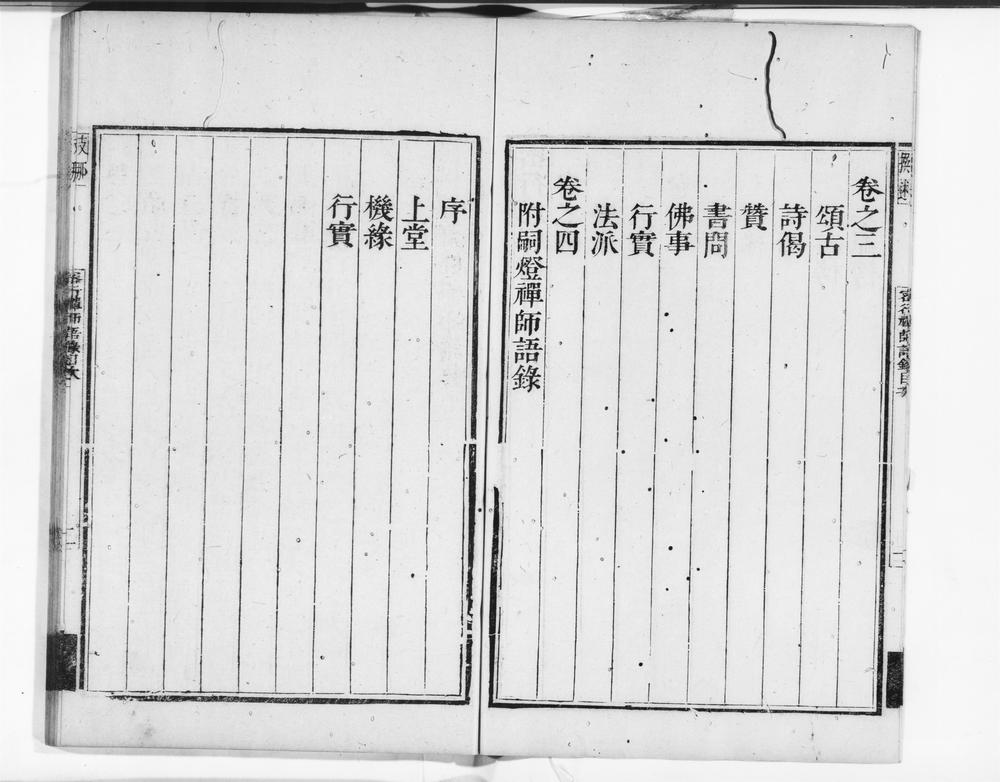 卷之三
頌古
詩偈
贊
書問
佛事
行實
法派
卷之四
附嗣燈禪師語錄
序
上堂
機緣
行實